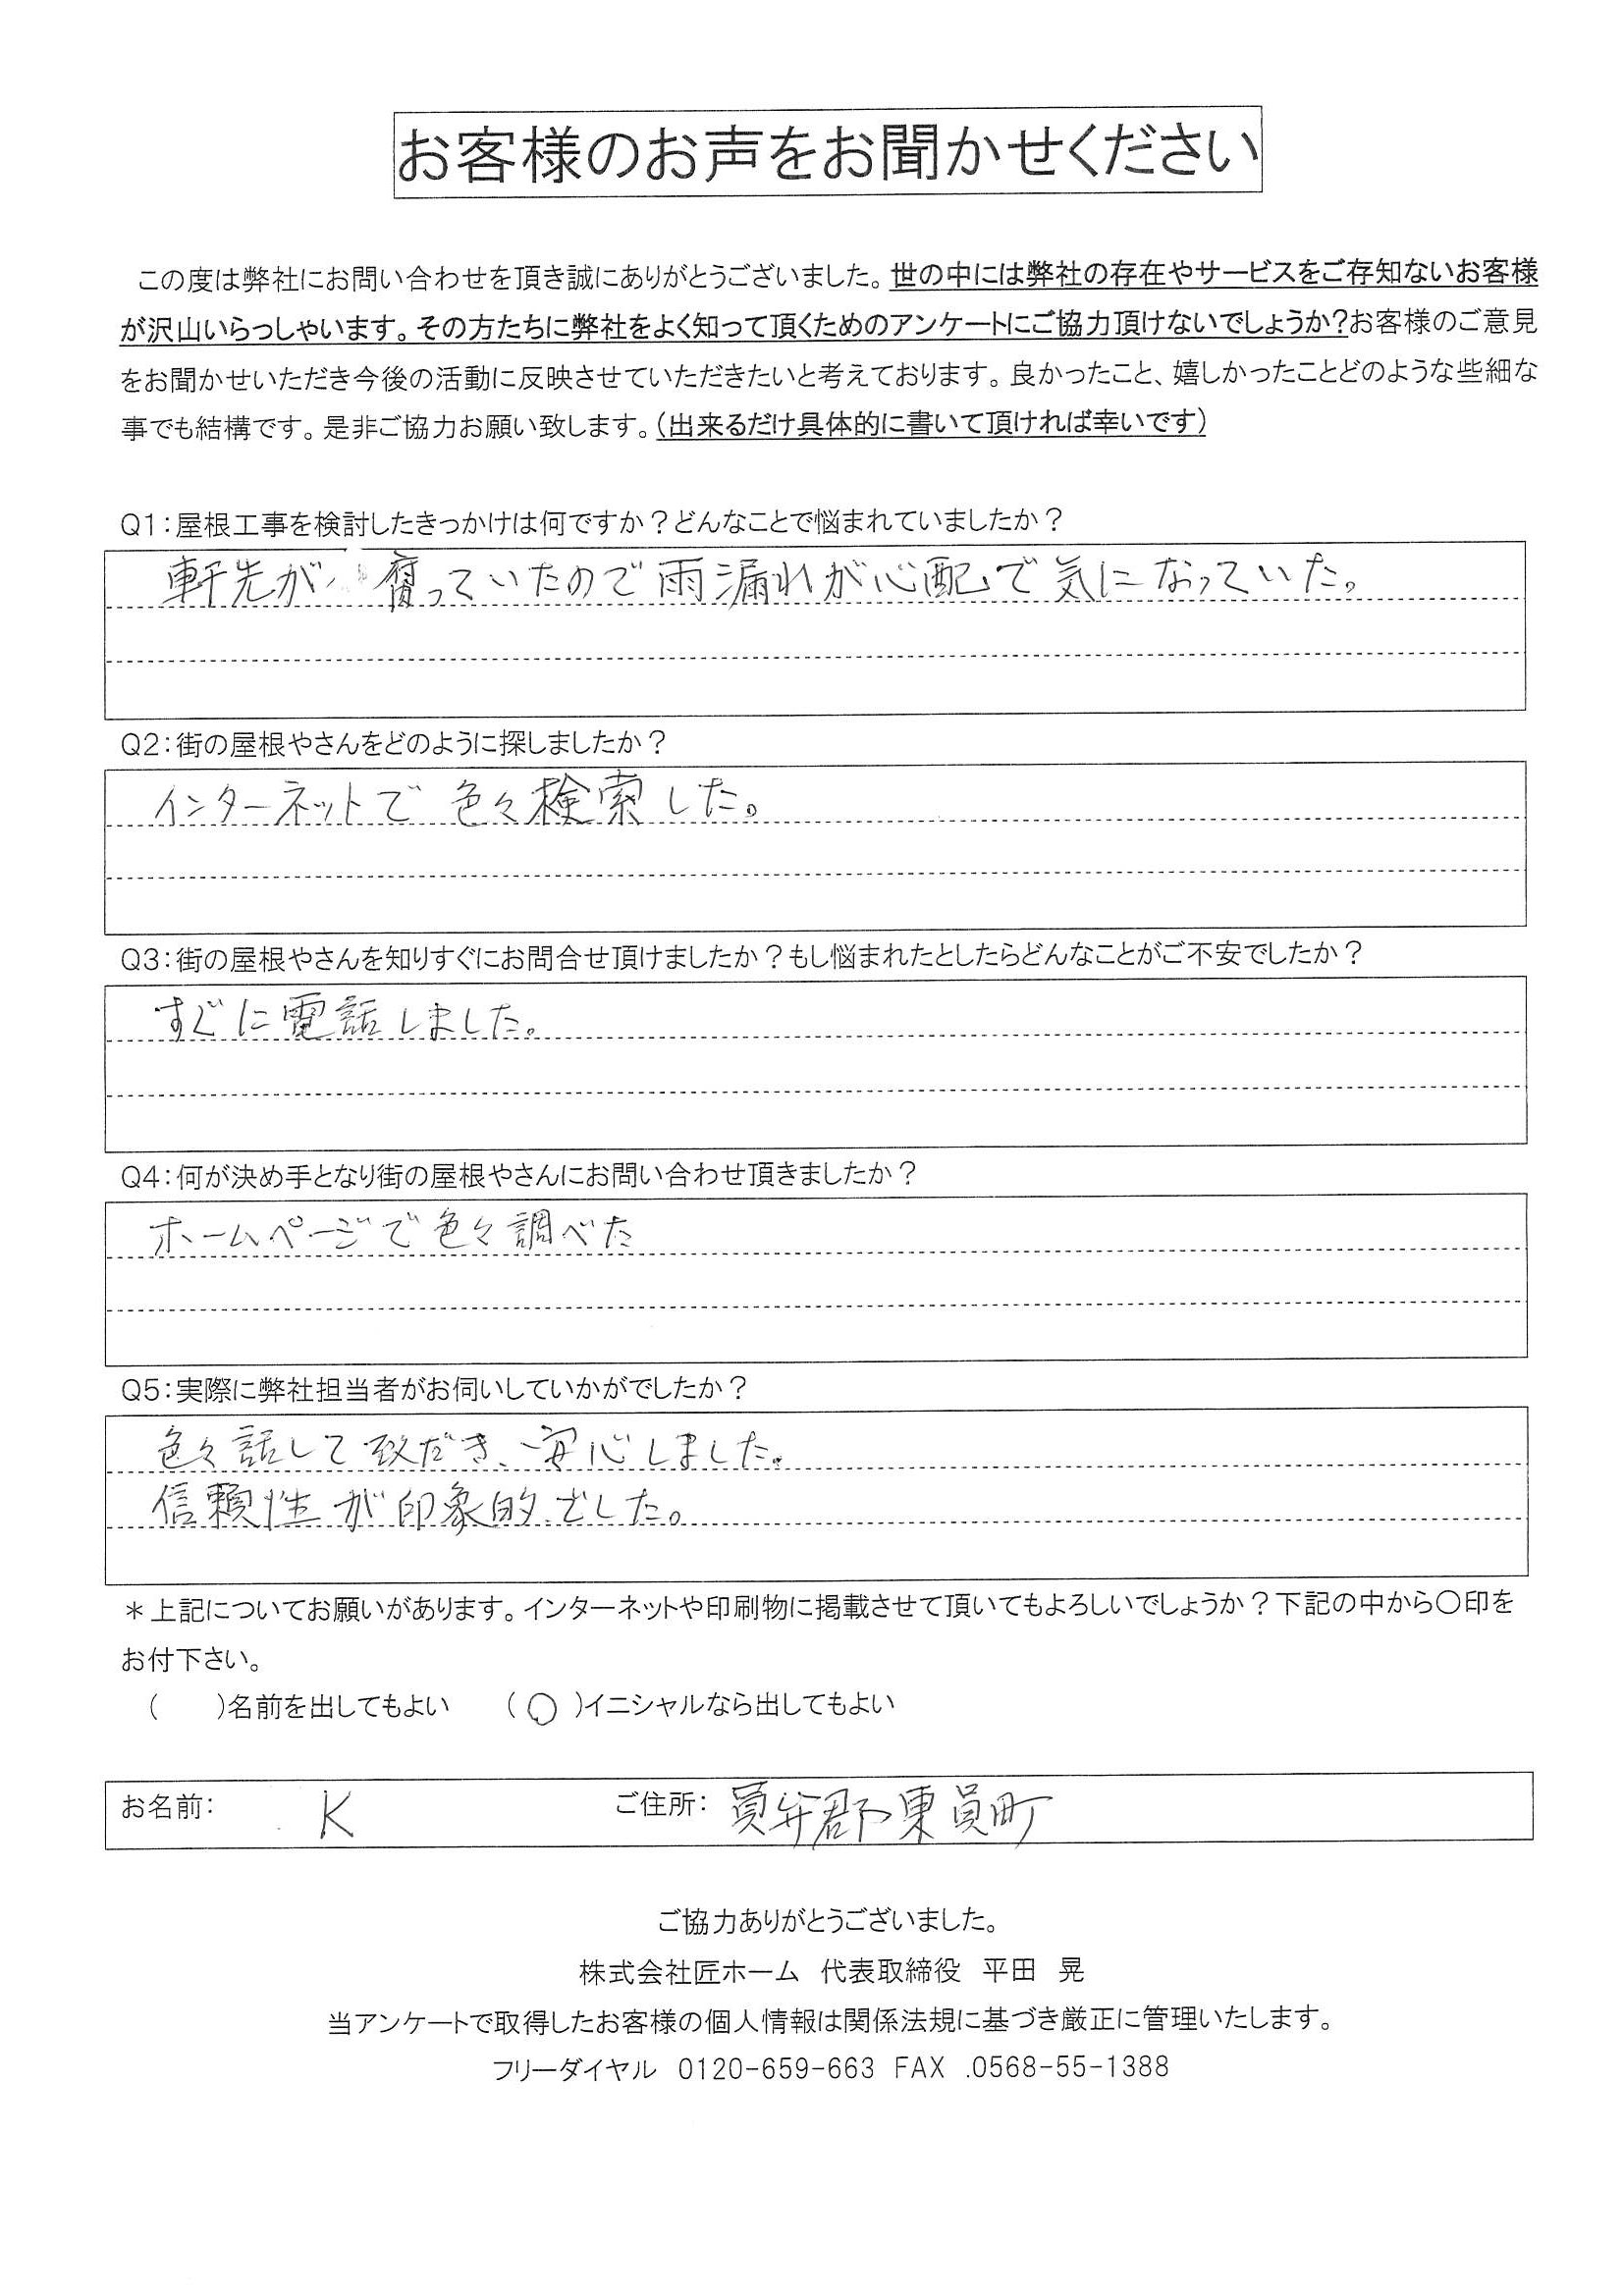 お客様のお声をお聞かせください
この度は弊社にお問い合わせを頂き誠にありがとうございました。世の中には弊社の存在やサービスをご存知ないお客様
が沢山いらっしゃいます。その方たちに弊社をよく知って頂くためのアンケートにご協力頂けないでしょうか?お客様のご意見
をお聞かせいただき今後の活動に反映させていただきたいと考えております。良かったこと、嬉しかったことどのような些細な
事でも結構です。是非ご協力お願い致します。(出来るだけ具体的に書いて頂ければ幸いです)
Q1:屋根工事を検討したきっかけは何ですか？どんなことで悩まれていましたか？
軒先が腐っていたので雨漏れが心配で気になっていた。
Q2:街の屋根やさんをどのように探しましたか？
インターネットで色々検索した。
Q3:街の屋根やさんを知りすぐにお問合せ頂けましたか？もし悩まれたとしたらどんなことがご不安でしたか？
すぐに電話しました。
Q4:何が決め手となり街の屋根やさんにお問い合わせ頂きましたか？
ホームページで色々調べた
Q5:実際に弊社担当者がお伺いしていかがでしたか？
色々話して致だき、安心しました。
信頼性が印象的でした。
＊上記についてお願いがあります。インターネットや印刷物に掲載させて頂いてもよろしいでしょうか？下記の中から〇印を
お付下さい。
(　　)名前を出してもよい　(〇)イニシャルなら出してもよい
お名前: K ご住所: 員弁郡東員町
ご協力ありがとうございました。
株式会社匠ホーム　代表取締役　平田　晃
当アンケートで取得したお客様の個人情報は関係法規に基づき厳正に管理いたします。
フリーダイヤル　0120-659-663 FAX .0568-55-1388